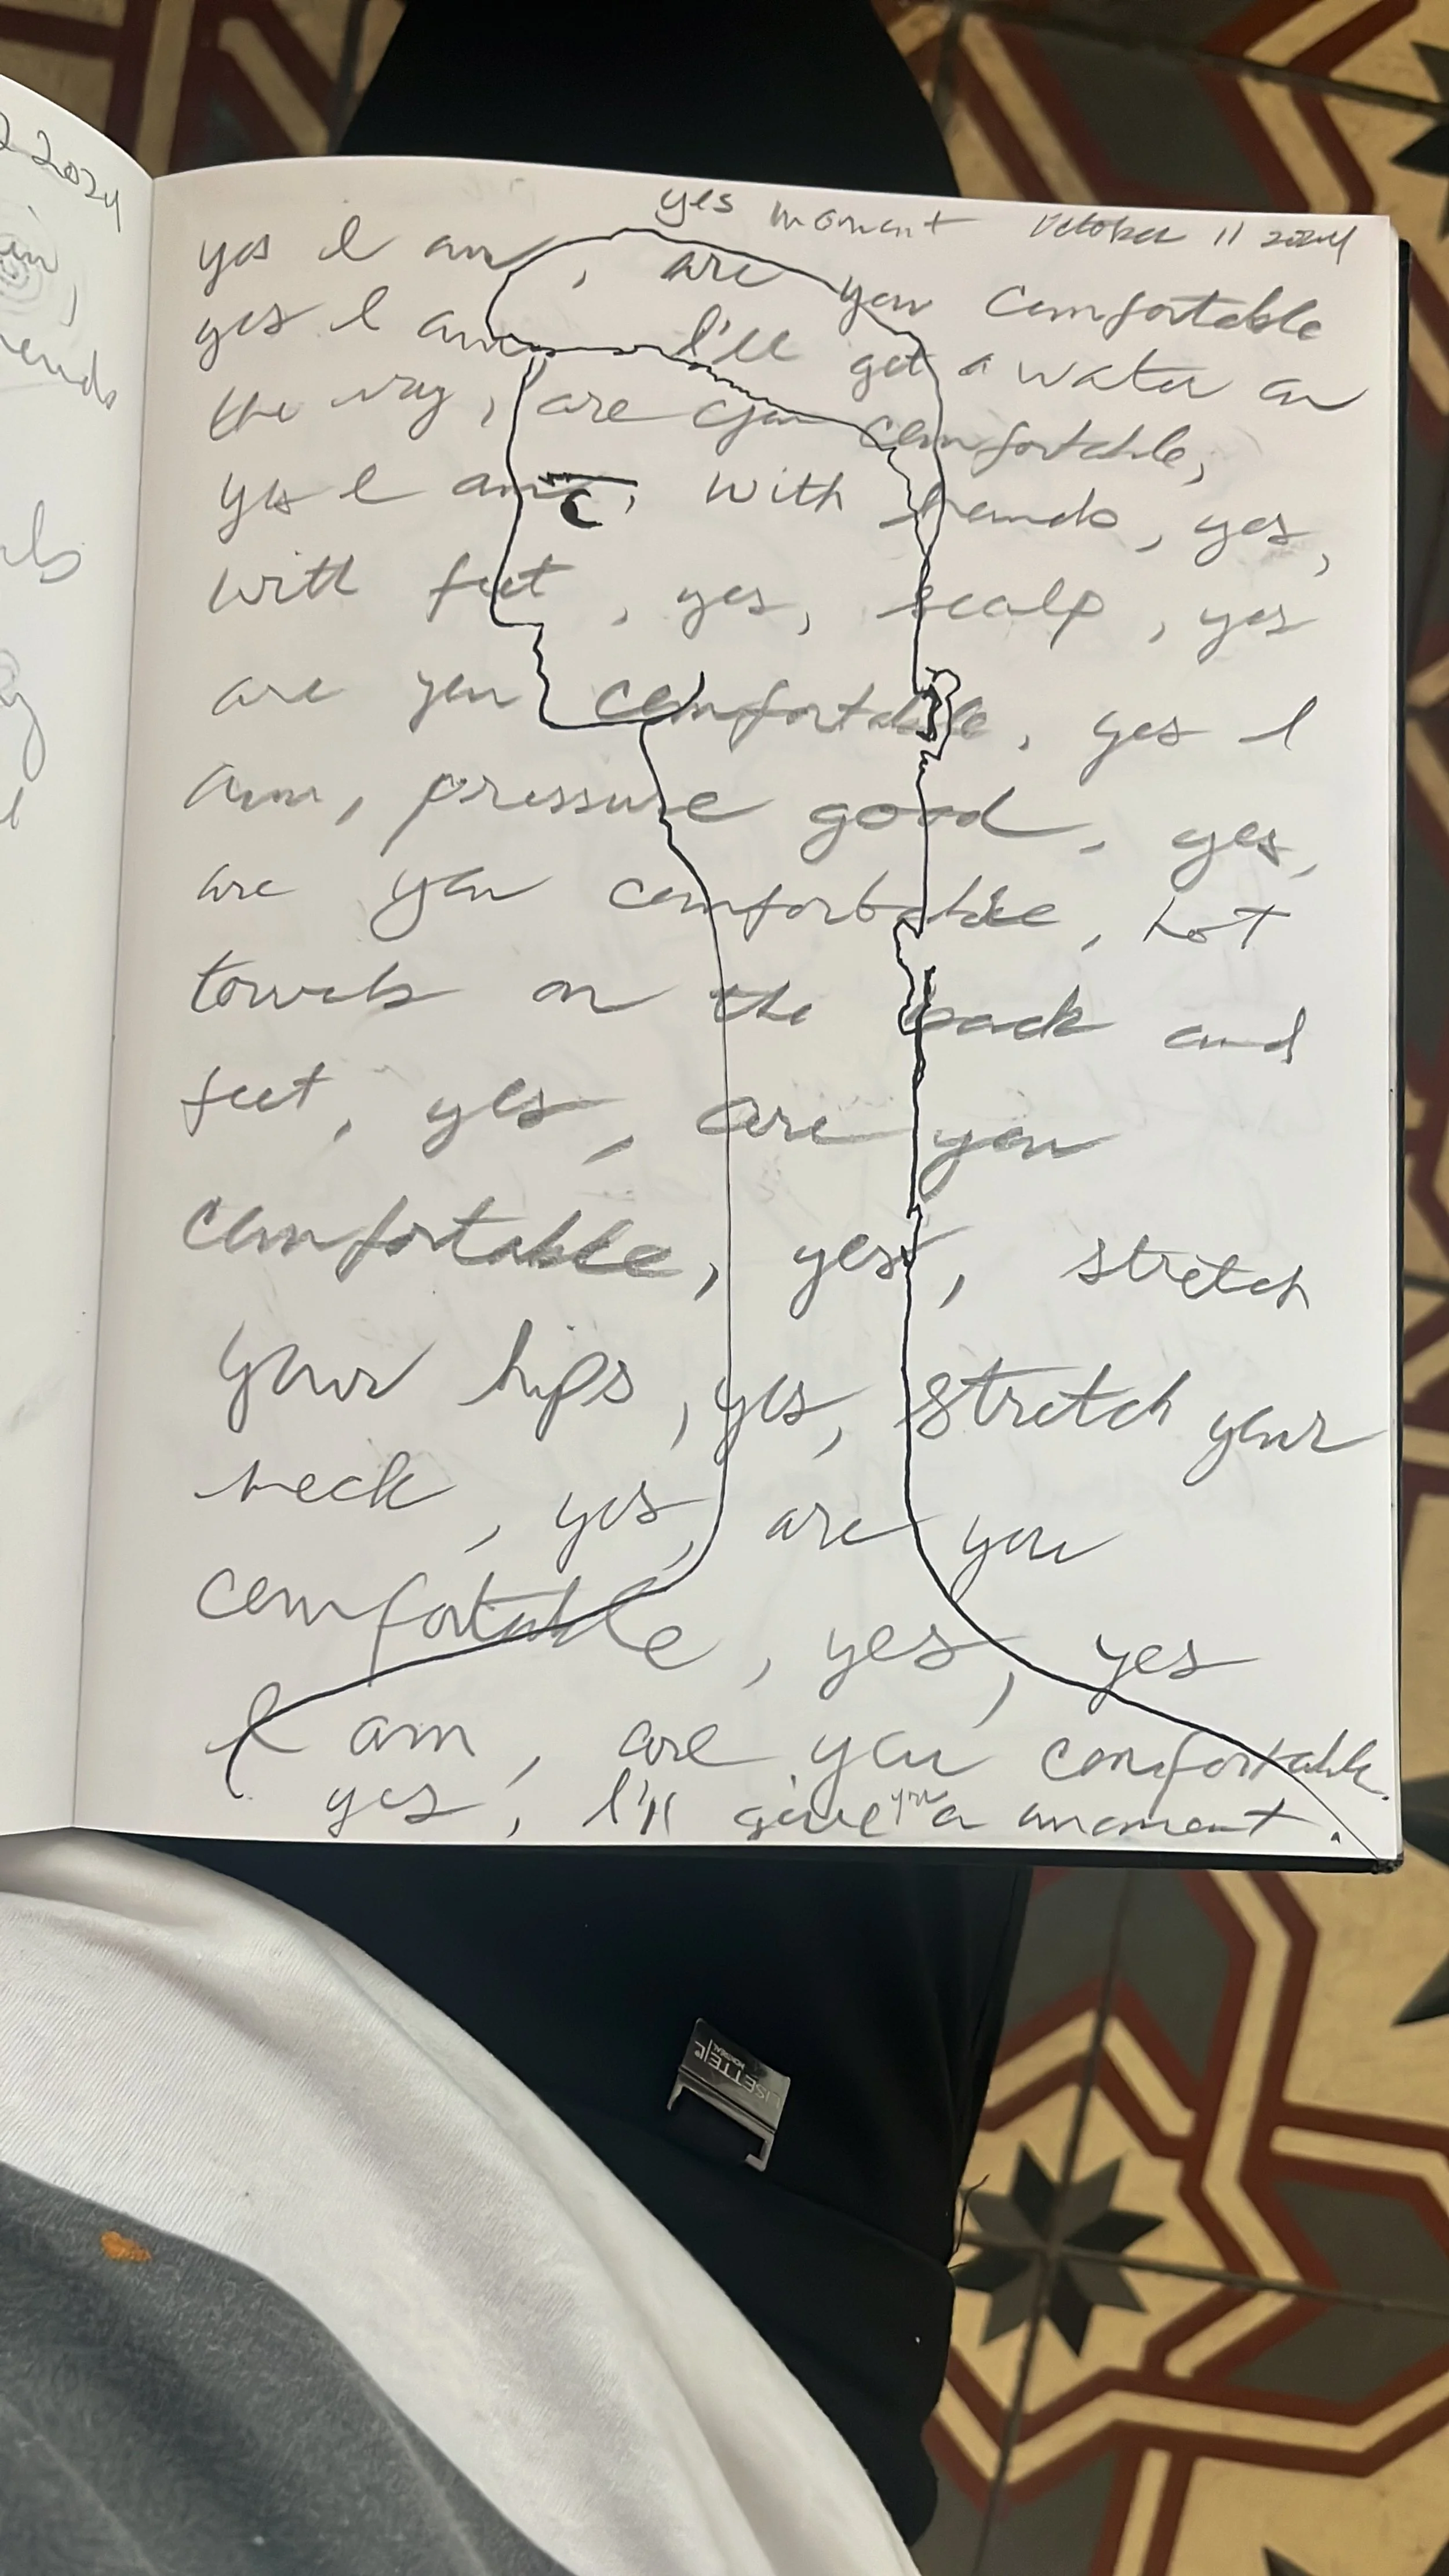 2 2024
yes moment October 11 2024
yes I am, are you comfortable
yes I am, I'll get a water on
the way, are you comfortable,
yes I am, with hands, yes,
with feet, yes, scalp, yes
are you comfortable, yes I
am, pressure good, yes,
are you comfortable, hot
towels on the back and
feet, yes, are you
comfortable, yes, stretch
your hips, yes, stretch your
neck, yes, are you
comfortable, yes, yes
I am, are you comfortable.
yes, I'll give you a moment.
LISETTE L
MONTREAL